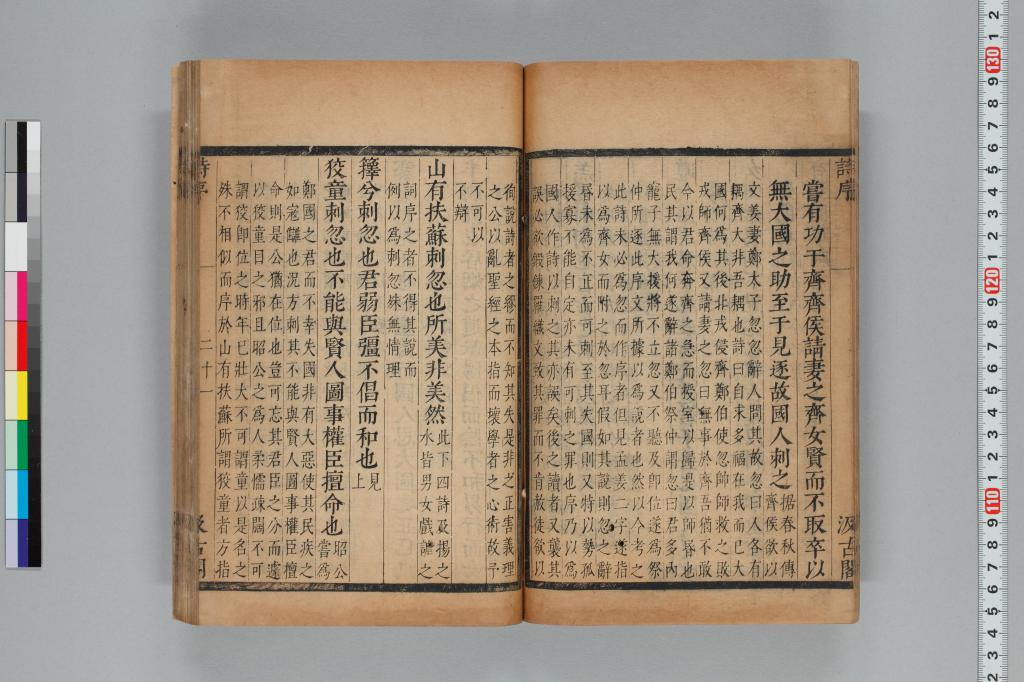 詩序
汲古閣
嘗有功于齊齊侯請妻之齊女賢而不取卒以
無大國之助至于見逐故國人刺之
据春秋傳
齊侯欲以
文姜妻鄭太子忽忽辭人問其故忽曰人各有
耦齊大非吾耦也詩曰自求多福在我而已大
國何爲其後北戎侵齊鄭伯使忽帥師救之敗
戎師齊侯又請妻之忽曰無事於齊吾猶不敢
今以君命奔齊之急而授室以歸是以師昏也
民其謂我何遂辭諸鄭伯祭仲謂忽曰君多內
寵子無大援將不立忽又不聽及卽位遂爲祭
仲所逐此序文所據以爲說者也然以今考之
此詩未必爲忽而作序者但見孟姜二字遂指
以爲齊女而附之於忽耳假如其說則忽之辭
昏未爲不正而可刺至其失國則又特以勢孤
援寡不能自定亦未有可刺之罪也序乃以爲
國人作詩以刺之其亦誤矣後之讀者又襲其
誤必欲鍛鍊羅織文致其罪而不肯赦徒欲以
徇說詩者之繆而不知其失是非之正害義理
之公以亂聖經之本指而壞學者之心術故予
不可以
不辯
山有扶蘇刺忽也所美非美然
此下四詩及揚之
水皆男女戲謔之
詞序之者不得其說而
例以爲刺忽殊無情理
蘀兮刺忽也君弱臣彊不倡而和也
見
上
狡童刺忽也不能與賢人圖事權臣擅命也
昭公
嘗爲
鄭國之君而不幸失國非有大惡使其民疾之
如寇讎也況方刺其不能與賢人圖事權臣擅
命則是公猶在位也豈可忘其君臣之分而遽
以狡童目之邪且昭公之爲人柔懦疎闊不可
謂狡卽位之時年已壯大不可謂童以是名之
殊不相似而序於山有扶蘇所謂狡童者方指
詩序
二十一
汲古閣